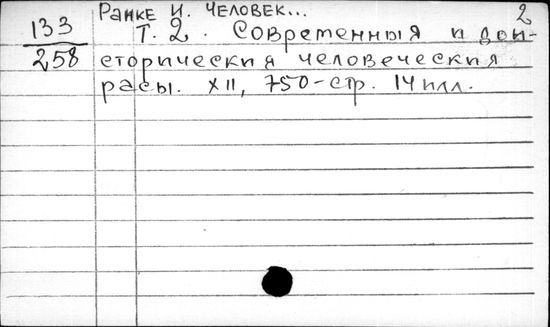 Ранке И. Человек... 2
133 Т. 2. Современныя и дои-
258 сторическия человеческия
расы. XII, 750-стр. 14 илл.